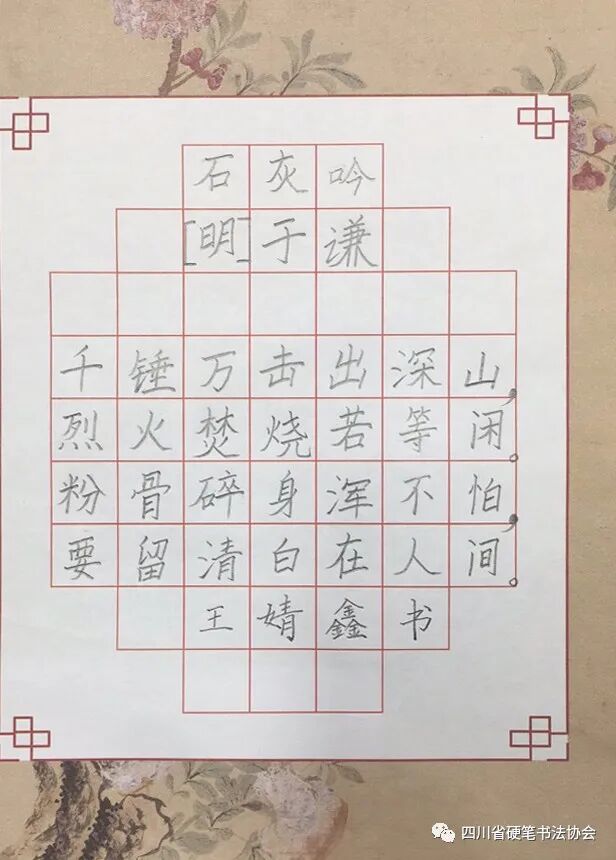 石灰吟
[明]于谦
千锤万击出深山，
烈火焚烧若等闲。
粉骨碎身浑不怕，
要留清白在人间。
王婧鑫书
四川省硬笔书法协会